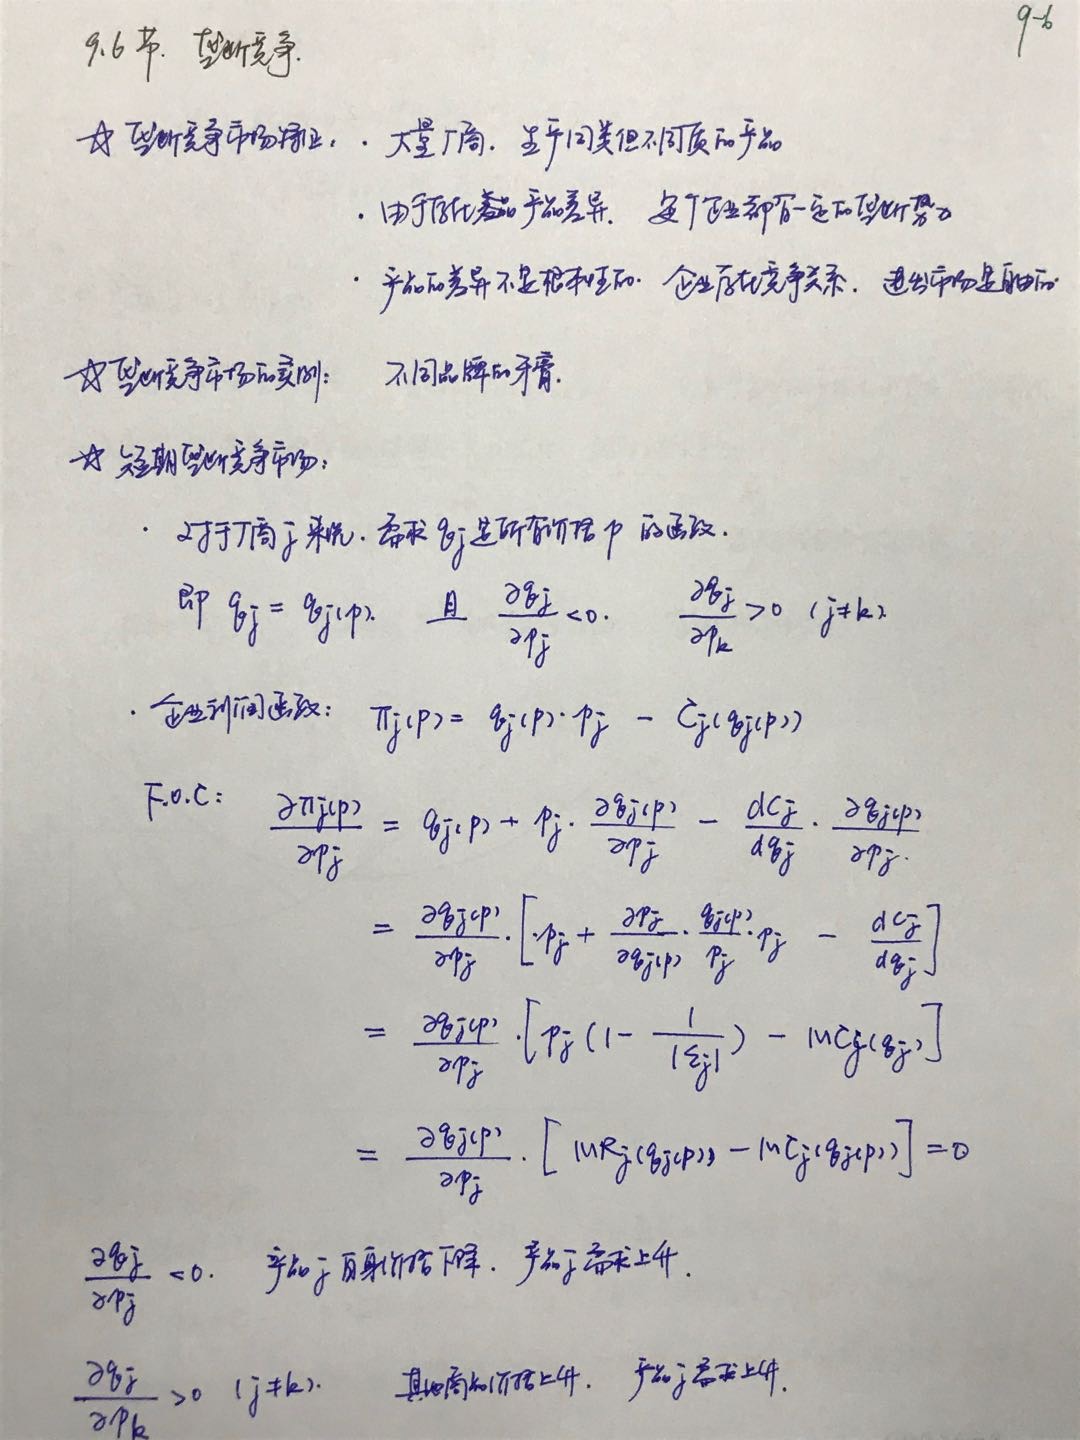 9-6
9.6节. 垄断竞争.
☆ 垄断竞争市场特征: · 大量厂商. 生产同类但不同质的产品
· 由于存在产品差异. 每个企业都有一定的垄断势力
· 产品的差异不是根本性的. 企业存在竞争关系. 进出市场是自由的.
☆ 垄断竞争市场的实例: 不同品牌的牙膏.
☆ 短期垄断竞争市场:
· 对于厂商j来说. 需求 qj 是所有价格 p 的函数.
即 qj = qj(p). 且 ∂qj/∂pj <0. ∂qj/∂pk >0 (j≠k).
· 企业利润函数: πj(p) = qj(p)·pj - Cj(qj(p))
F.O.C: ∂πj(p)/∂pj = qj(p) + pj · ∂qj(p)/∂pj - dCj/dqj · ∂qj(p)/∂pj.
= ∂qj(p)/∂pj · [·pj + ∂pj/∂qj(p) · qj(p)/pj · pj - dCj/dqj]
= ∂qj(p)/∂pj · [pj (1 - 1/|εj|) - MCj(qj)]
= ∂qj(p)/∂pj · [MRj(qj(p)) - MCj(qj(p))] = 0
∂qj/∂pj <0. 产品j自身价格下降. 产品j需求上升.
∂qj/∂pk >0 (j≠k). 其他商品价格上升. 产品j需求上升.